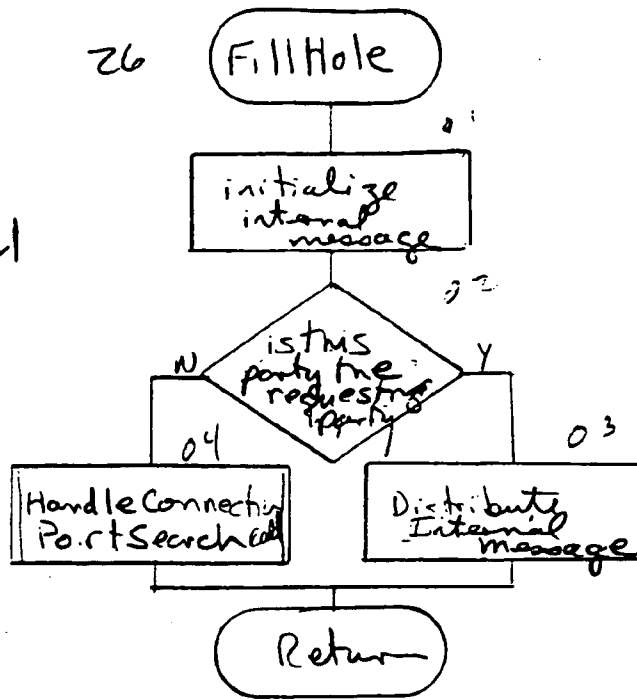 26
FillHole
01
initialize
internal
message
02
is this
party the
requesting
party
N
Y
04
03
Handle Connection
Port Search
Distribute
Internal
Message
Return